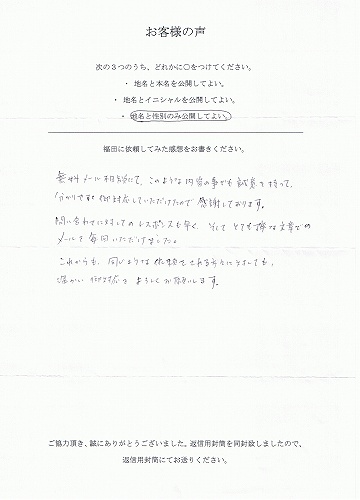 お客様の声
次の３つのうち、どれかに○をつけてください。
・ 地名と本名を公開してよい。
・ 地名とイニシャルを公開してよい。
・ 地名と性別のみ公開してよい。
福田に依頼してみた感想をお書きください。
無料メール相談にて、このような内容の事でも誠意を持って、
分かりやすい御対応していただけたので感謝しております。
問い合わせに対してのレスポンスも早く、そして とても丁寧な文章での
メールを毎回いただけました。
これからも、同じような依頼をされる方々に対しても、
温かい御対応をよろしくお願いします。
ご協力頂き、誠にありがとうございました。返信用封筒を同封致しましたので、
返信用封筒にてお送りください。